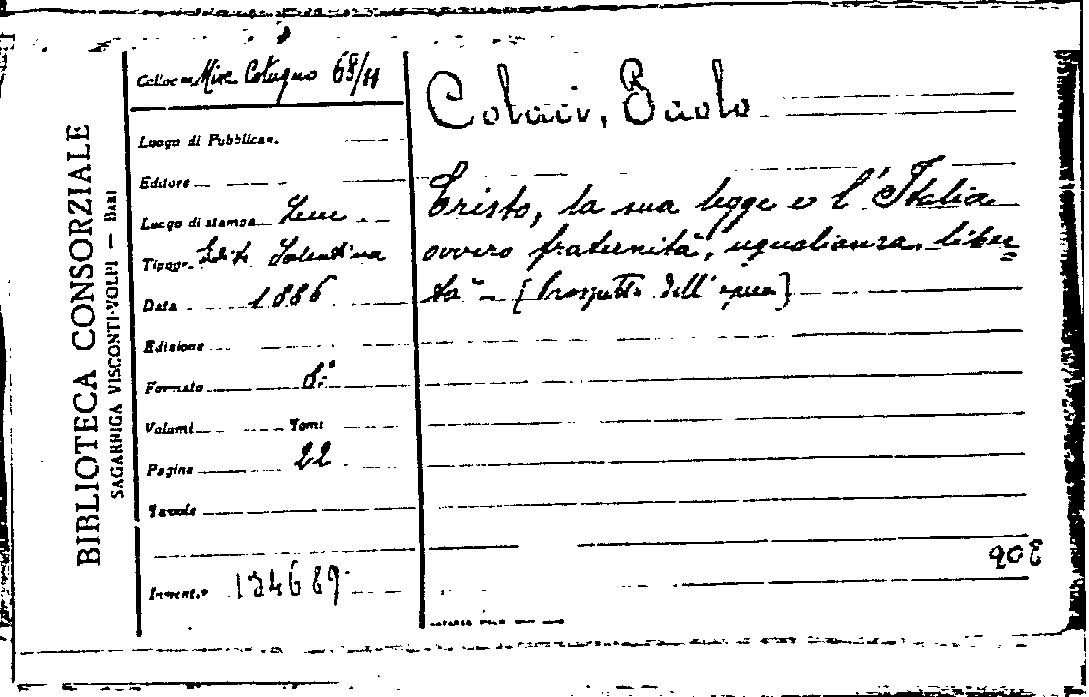 BIBLIOTECA CONSORZIALE
SAGARRIGA VISCONTI-VOLPI — BARI
Colloc. Misc. Cotugno 68/11
Luogo di Pubblicaz.
Editore
Luogo di stampa Lecce
Tipogr. Edit. Salentina
Data 1886
Edizione
Formato 8.°
Volumi Tomi
Pagine 22
Tavole
Invent.º 134689
Colaci, Paolo
Cristo, la sua legge e l'Italia
ovvero fraternità, uguaglianza, liber=
tà - [Prospetto dell'opera]
908